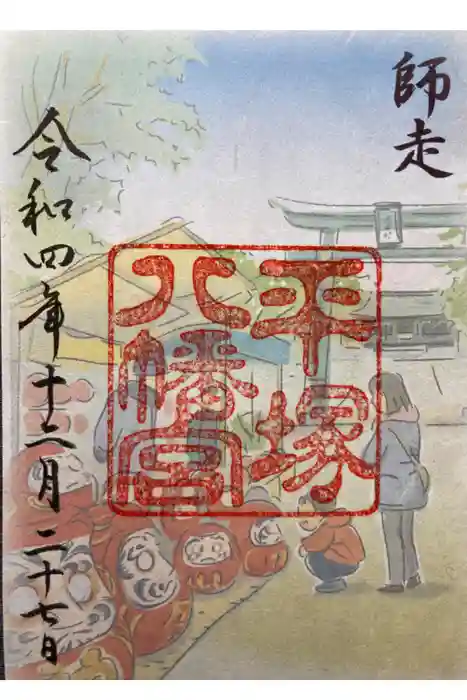 師走
平塚
八幡宮
令和四年十二月二十七日